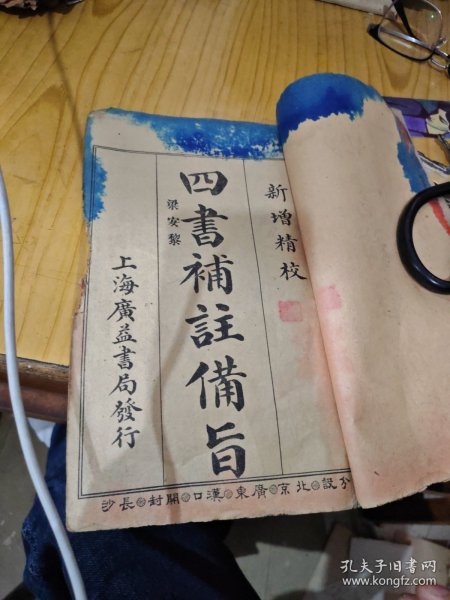 新增精校
四書補註備旨
梁安黎
上海廣益書局發行
分設北京廣東漢口開封長沙
孔夫子旧书网
www.kongfz.com